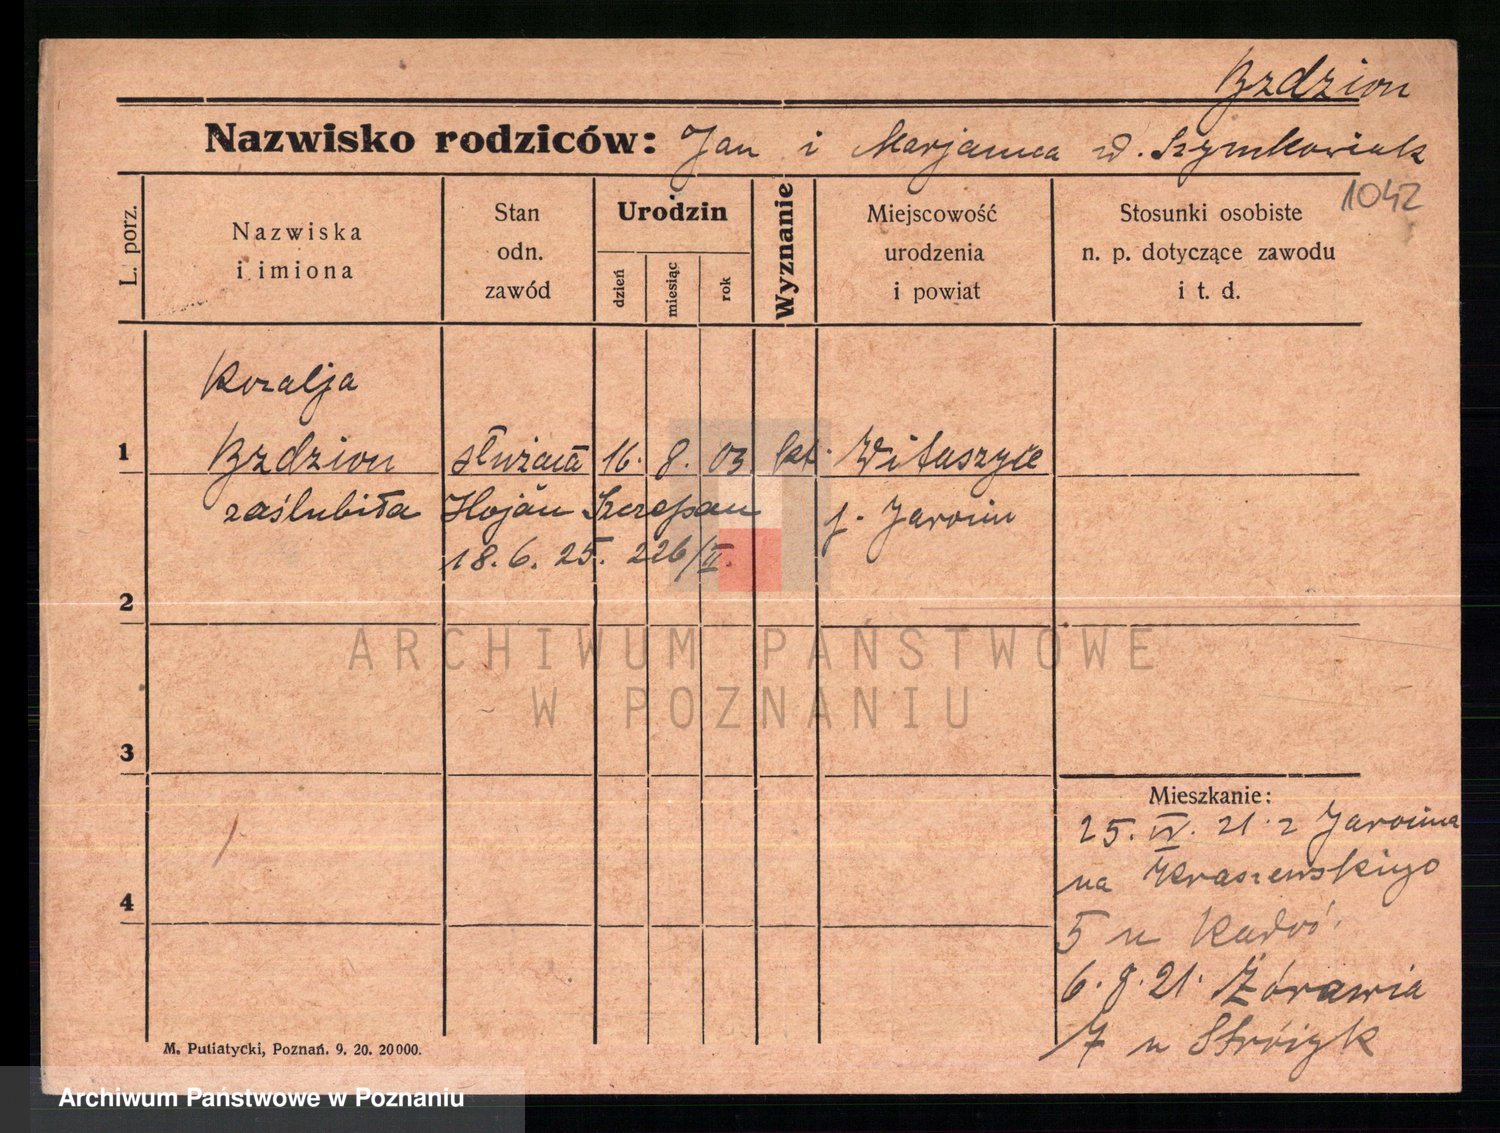 Bzdzion
Nazwisko rodziców: Jan i Marjanna d. Szymkowiak
1042
L. porz.
Nazwiska
i imiona
Stan
odn.
zawód
Urodzin
dzień
miesiąc
rok
Wyznanie
Miejscowość
urodzenia
i powiat
Stosunki osobiste
n. p. dotyczące zawodu
i t. d.
Rozalja
1 Bzdzion służąca 16. 8. 03 kt. Witaszyce
zaślubiła Hojan Szczepan p. Jarocin
18. 6. 25. 226/II.
2
ARCHIWUM PAŃSTWOWE
W POZNANIU
3
Mieszkanie:
25. IV. 21 z Jarocina
na Kraszewskiego
4
5 u
6. 8. 21. Żórawia
7 u Stróżyk
M. Putiatycki, Poznań. 9. 20. 20000.
Archiwum Państwowe w Poznaniu